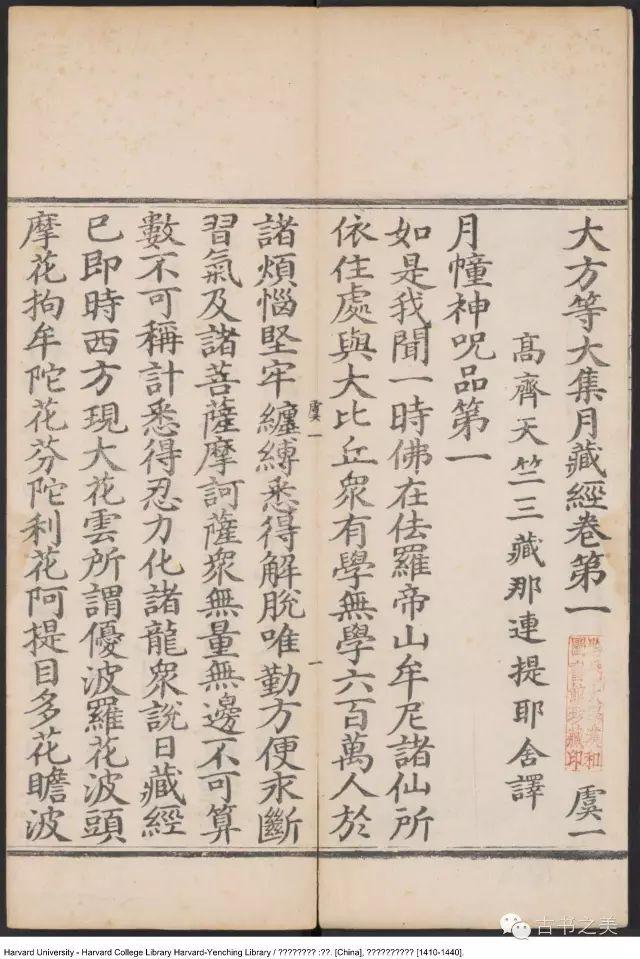 大方等大集月藏經卷第一 虞一
高齊天竺三藏那連提耶舍譯
月幢神呪品第一
如是我聞一時佛在佉羅帝山牟尼諸仙所
依住處與大比丘衆有學無學六百萬人於
虞一 一
諸煩惱堅牢纏縛悉得解脫唯勤方便求斷
習氣及諸菩薩摩訶薩衆無量無邊不可算
數不可稱計悉得忍力化諸龍衆說日藏經
已即時西方現大花雲所謂優波羅花波頭
摩花拘牟陀花芬陀利花阿提目多花瞻波
古书之美
Harvard University - Harvard College Library Harvard-Yenching Library / ???????? :??. [China], ?????????? [1410-1440].